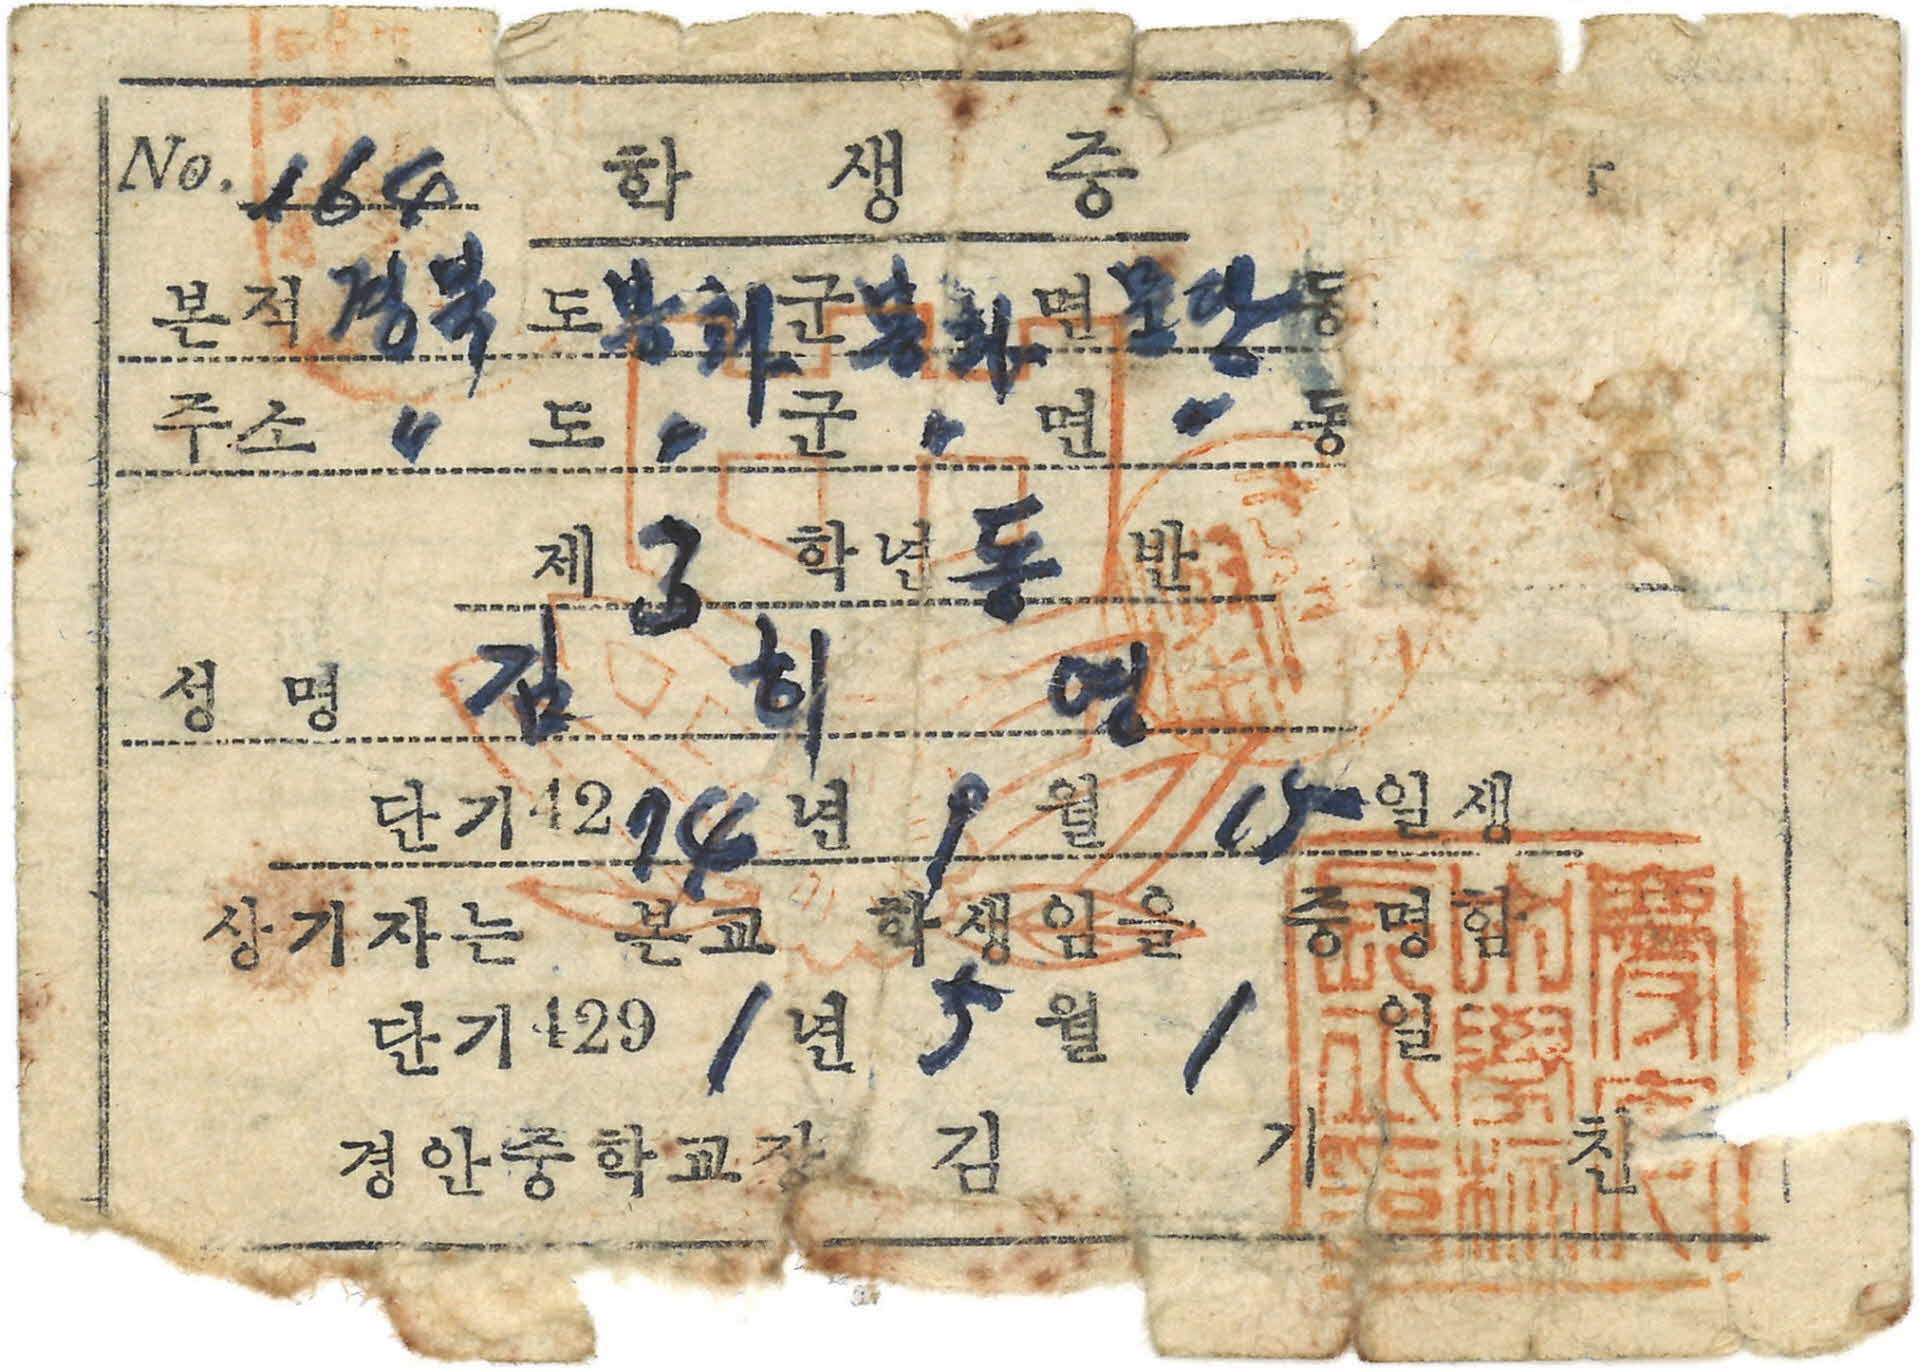 No. 164 학생증
본적 경북 도 봉화 군 봉화 면 문단 동
주소 〃 도 〃 군 〃 면 〃 동
제 3 학년 동 반
성명 김희영
단기 4274년 1월 15일생
상기자는 본교 학생임을 증명함
단기 4291년 5월 1일
경안중학교장 김기친
慶安中學校長之印